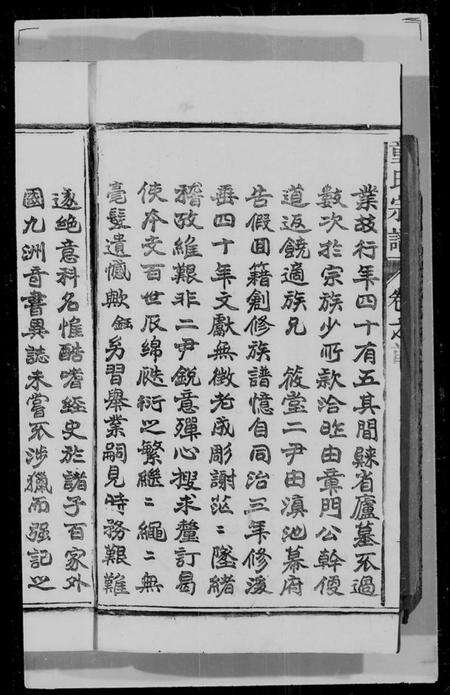 童氏宗譜 卷之首
業故行年四十有五其間歸省廬墓不過
數次於宗族少所款洽昨由章門公幹便
道返饒適族兄 筱堂二尹由滇池幕府
告假回籍創修族譜憶自同治三年修後
垂四十年文獻無徵老成彫謝茫〻墜緒
稽攷維艱非二尹銳意殫心搜求釐訂曷
使本支百世瓜緜瓞衍之繁繼〻繩〻無
毫髮遺憾歟鈺勞習舉業嗣見時務艱難
遂絶意科名惟酷嗜經史於諸子百家外
國九洲音書異誌未嘗不涉獵而强記之